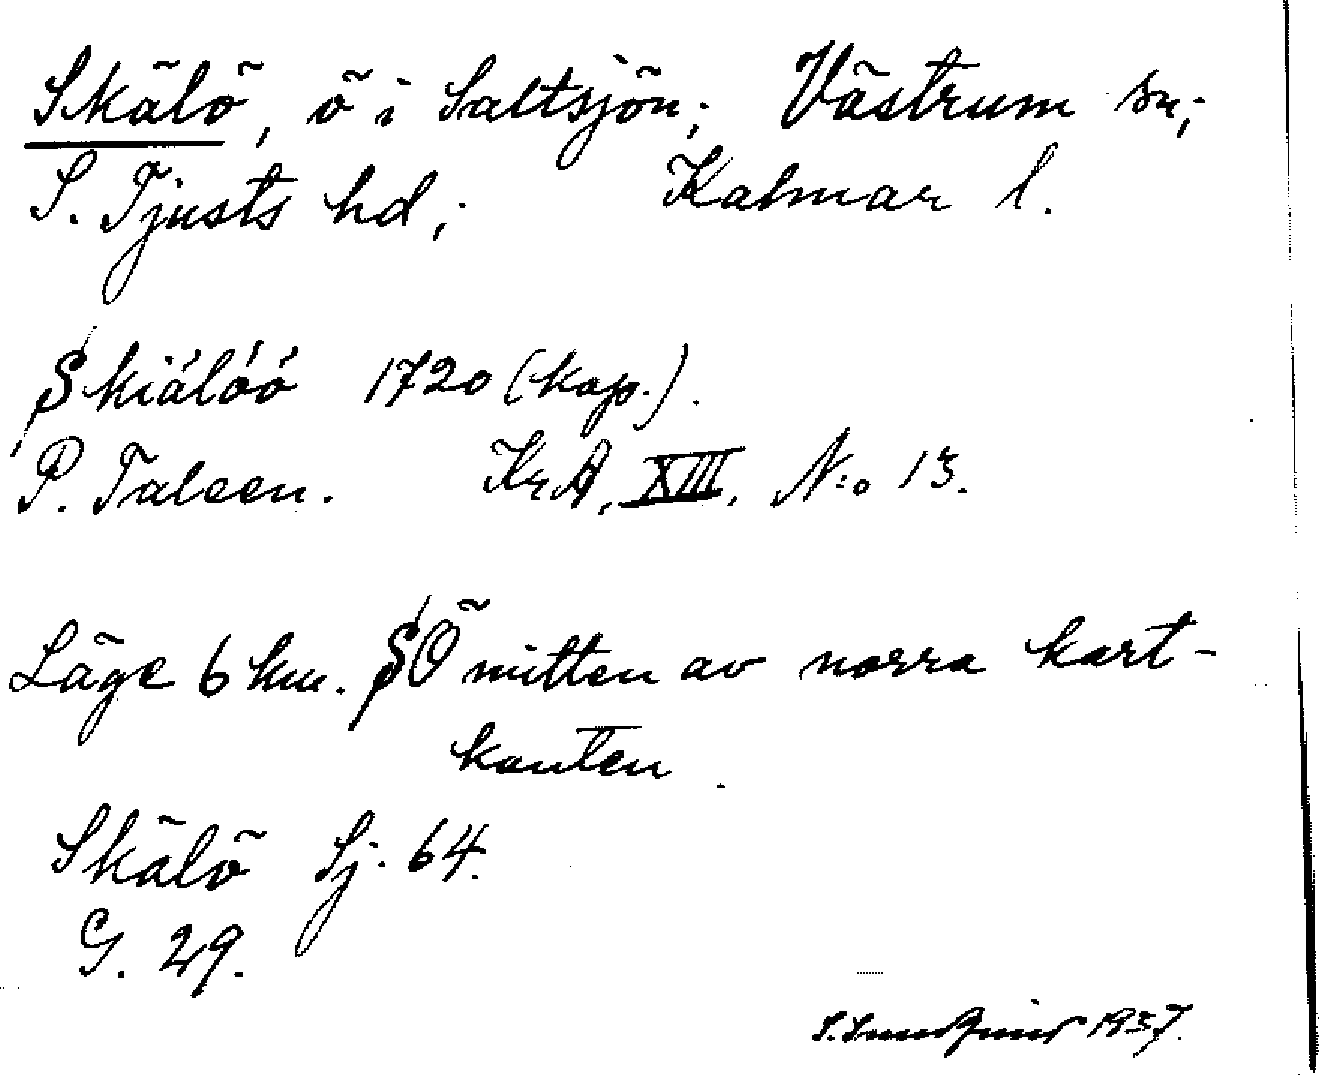 Skälö, ö i Saltsjön; Västrum sn;
S. Tjusts hd; Kalmar l.
Skiálóó 1720 (kop.).
P. Taleen. KrA, XIII, N:o 13.
Läge 6 km. SÖ mitten av norra kart-
kanten.
Skälö Sj. 64.
G. 29.
1937.